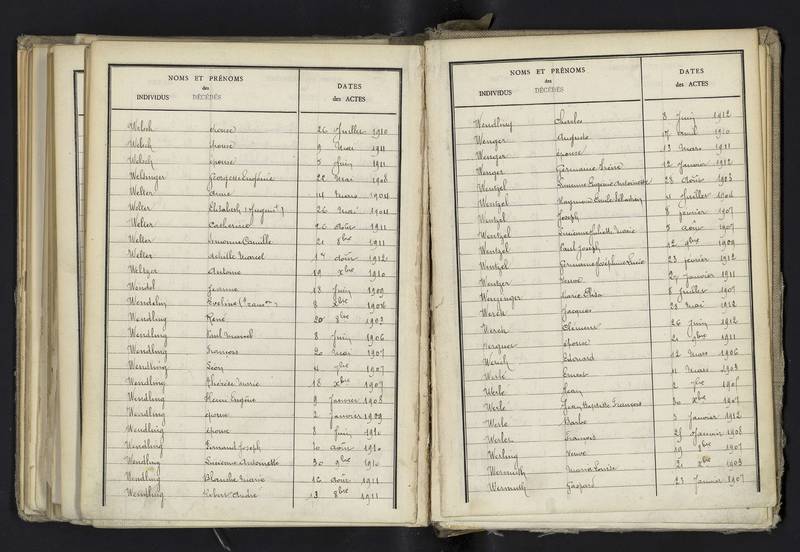 NOMS ET PRÉNOMS
des
INDIVIDUS DÉCÉDÉS
DATES
des ACTES
Welsch épouse 26 Juillet 1910
Welsch épouse 9 Mai 1911
Welsch épouse 5 Juin 1911
Weltringer Georgette Eugénie 22 Mai 1908
Welter Aimé 14 Mars 1904
Welter Elisabeth 26 Mai 1904
Welter Catherine 26 Août 1911
Welter Simonne Camille 21 8bre 1911
Welter Achille Marcel Août 1912
Weltzer Antoine 19 xbre 1910
Wendel Jeanne 18 Juin 1909
Wendeling Eveline 8 1906
Wendling René 20 8bre 1903
Wendling Paul Marcel 8 Juin 1906
Wendling François 20 Mai 1907
Wendling Léon 4 7bre 1907
Wendling Thérèse Marie 18 xbre 1907
Wendling Henri Eugène 9 Janvier 1908
Wendling épouse 2 Janvier 1909
Wendling épouse 8 Juin 1910
Wendling Fernand Joseph 10 Août 1910
Wendling Lucienne Antoinette 30 9bre 1910
Wendling Blanche Marie 16 Août 1911
Wendling Robert André 13 8bre 1911
NOMS ET PRÉNOMS
des
INDIVIDUS DÉCÉDÉS
DATES
des ACTES
Wendling Charles 8 Juin 1912
Wenger Auguste 17 Avril 1910
Wenger épouse 13 Mars 1911
Wenger Germaine 12 Janvier 1912
Wentzel Simonne Eugénie Antoinette 28 Août 1903
Wentzel Raymond Emile Sébastien 4 Juillet 1904
Wentzel Joseph 8 février 1907
Wentzel Lucienne Juliette Marie 5 Août 1907
Wentzel Paul Joseph 12 9bre 1909
Wentzel Germaine Joséphine Lucie 23 février 1912
Wentzer Veuve 27 Janvier 1911
Marie Elisa 8 Juillet 1907
Werch Jacques 23 Mai 1912
Werch Clément 26 Juin 1912
épouse 21 9bre 1911
Edouard 12 Mars 1906
Werlé Ernest 11 Mars 1903
Werlé Jean 2
Werlé Jean Baptiste François 30 xbre 1907
Werlé Barbe 3 Janvier 1912
Werler François 28 Janvier 1908
Werling Veuve 19 1907
Wermuth Marie Louise 21 1903
Wermuth Gaspard 23 Janvier 1907